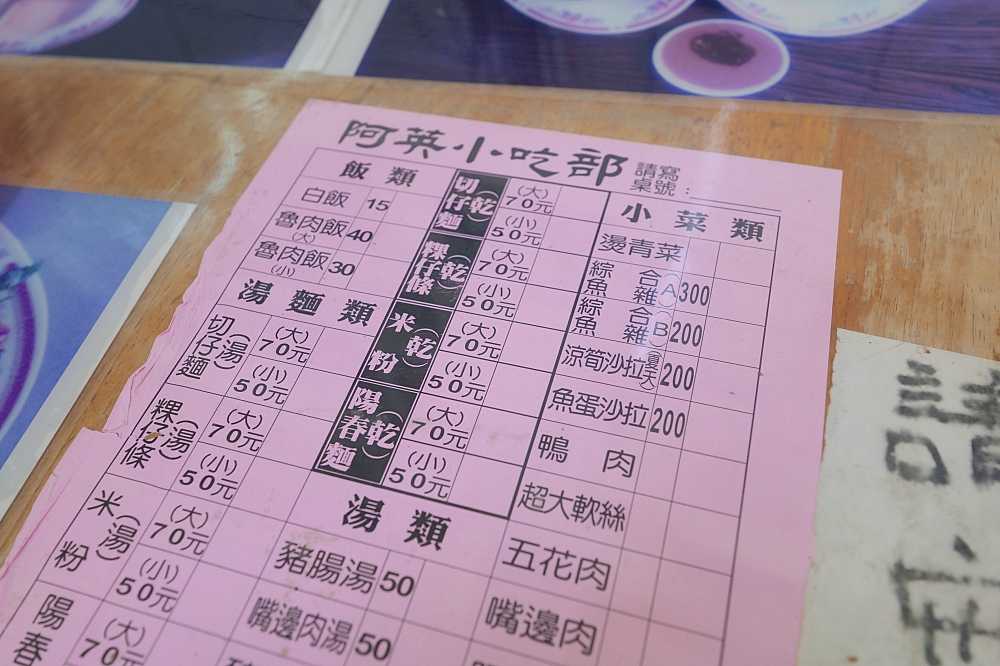 阿英小吃部
請寫
桌號：
飯類
白飯 15
魯肉飯(大) 40
魯肉飯(小) 30
湯麵類
切仔麵(湯) (大) 70元
(小) 50元
粿仔條(湯) (大) 70元
(小) 50元
米粉(湯) (大) 70元
(小) 50元
陽春 (大) 70元
切仔麵(乾) (大) 70元
(小) 50元
粿仔條(乾) (大) 70元
(小) 50元
米粉(乾) (大) 70元
(小) 50元
陽春麵(乾) (大) 70元
(小) 50元
湯類
豬腸湯 50
嘴邊肉湯 50
小菜類
燙青菜
綜合魚雜(A) 300
綜合魚雜(B) 200
涼筍沙拉(夏天) 200
魚蛋沙拉 200
鴨肉
超大軟絲
五花肉
嘴邊肉